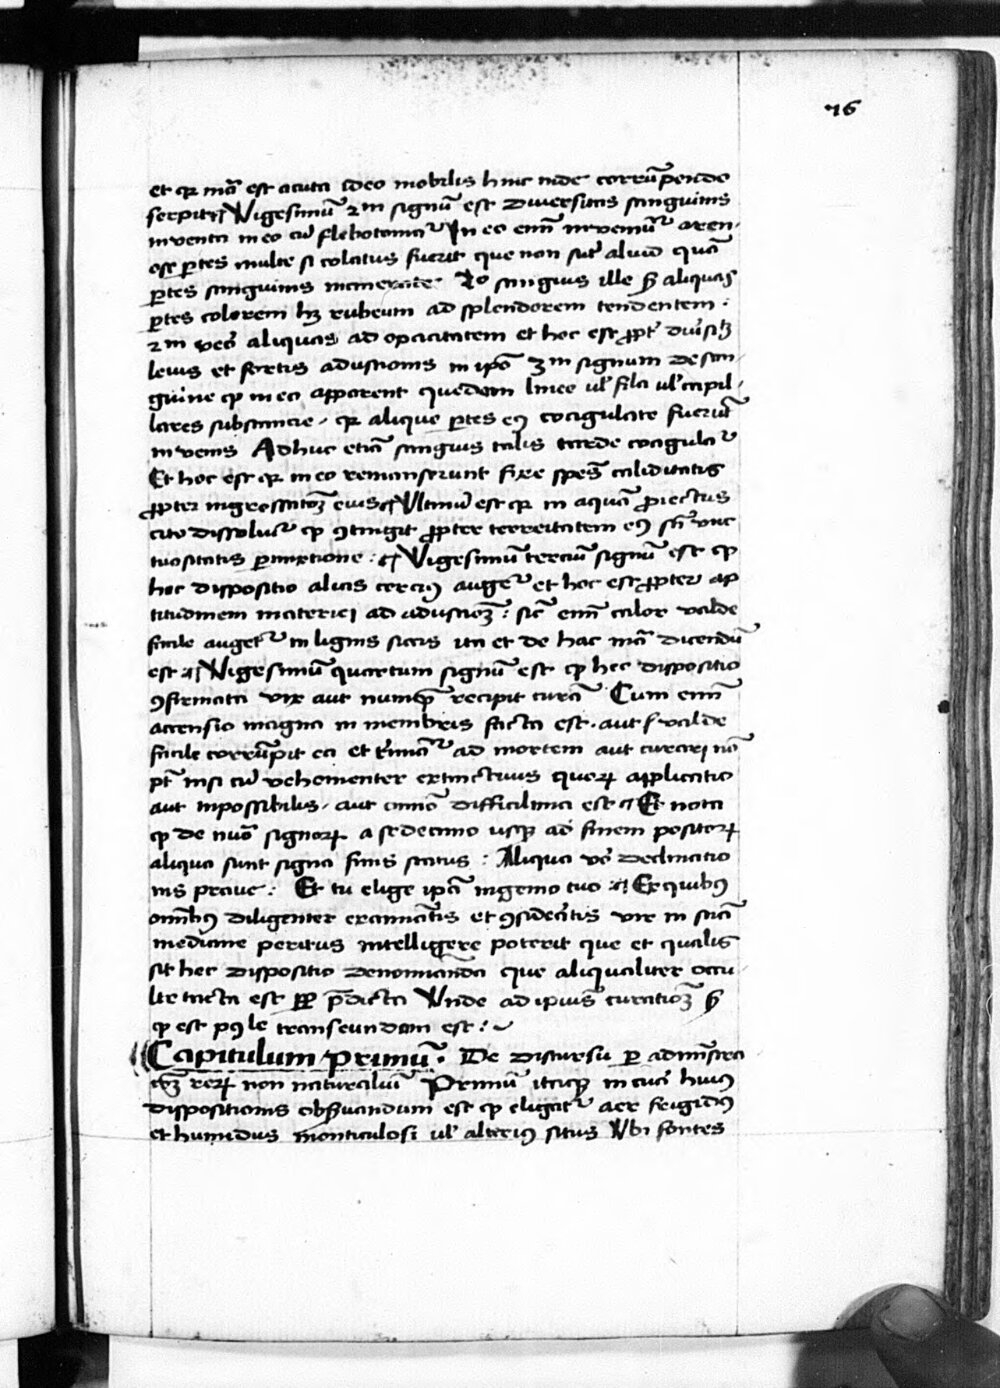 76
et qr mã est acuta ideo mobilis hinc inde corrũpendo
serpit ¶ Vigesimũ 2m signũ est diversitas sanguinis
inventi in eo cũ flebotomat᷑ In eo enĩ inveniũt᷑ aren-
ose ptes multe si colatus fuerit que non sũt aliud quã
ptes sanguinis incinerate sanguis ille aliquas
ptes colorem hȝ rubeum ad splendorem tendentem :
2m vero aliquas ad opacitatem et hoc est ppt
levis et fortis adustionis in ipõ 3m signum de san-
guine qp in eo apparent quedam linee ul fila ul capil-
lares substancie . qr alique ptes eꝰ coagulate fuerũt
in venis Adhuc etiã sanguis talis tarde coagulat᷑
Et hoc est qr in eo remanserunt fixe spẽs caliditatis
ppter ingrossatõȝ eius ¶ Ultimũ est qr in aquã proiectus
cito dissolvit᷑ qp ꝯtingit ppter terreitatem eꝰ sñ unc
tuositatis pmixtione : ¶ Vigesimum tercium signũ est qp
hec dispositio alicis cerciꝰ auget᷑ et hoc est ppter ap
titudinem materiei ad adustiõȝ : sic enĩ calor valde
facile auget᷑ in lignis siccis ita et de hac mã dicendũ
est ¶ Vigesimũ quartum signũ est qp hec dispositio
ꝯfirmata vix aut numqȝ recipit curã Cum enĩ
accensio magna in membris facta est . aut valde
facile corrũpit ea et t᷑minat᷑ ad mortem aut curari nõ
pt nisi cũ vehementer extinctivis quoꝝ applicatio
aut inpossibilis . aut omĩno difficilima est ¶ Et nota
qp de nũo signoꝝ a sedecimo usqȝ ad finem positoꝝ
aliqua sunt signa finis status : Aliqua vo declinatio
nis prave : Et tu elige ipã ingenio tuo : ¶ Ex quibꝰ
omĩbꝰ diligenter examinatis et ꝯsideratis vir in sciã
medicine peritus intelligere poterit que et qualis
sit hec dispositio denominãda que aliqualiter occu-
lte tacta est pdicta Unde ad ipius curatiõȝ
qp est transeundum est :
Capitulum primũ . De discursu p administra
rerꝝ non naturaliũ Primũ itaqȝ in cura huius
dispositionis observandum est qp eligat᷑ aer frigidꝰ
et humidus monticulosi ul alterius situs Ubi fontes